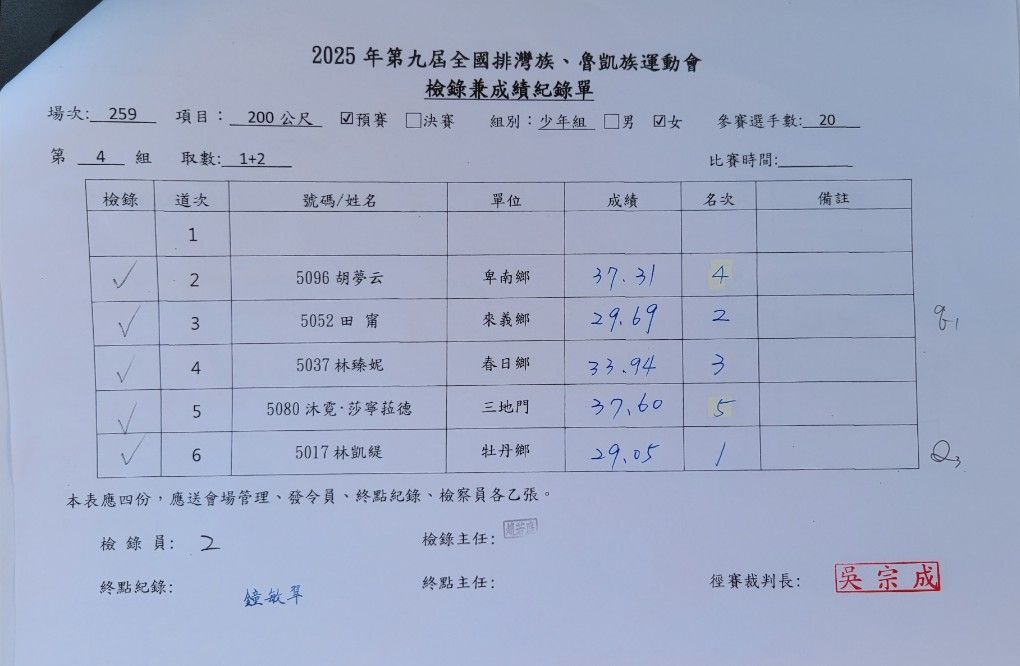 2025 年第九屆全國排灣族、魯凱族運動會
檢錄兼成績紀錄單
場次: 259 項目： 200 公尺 ☑預賽 □決賽 組別：少年組 □男 ☑女 參賽選手數: 20
第 4 組 取數: 1+2 比賽時間:
檢錄 道次 號碼/姓名 單位 成績 名次 備註
1
✓ 2 5096 胡夢云 卑南鄉 37.31 4
✓ 3 5052 田 甯 來義鄉 29.69 2 q1
✓ 4 5037 林臻妮 春日鄉 33.94 3
✓ 5 5080 沐霓·莎寧菈德 三地門 37.60 5
✓ 6 5017 林凱緹 牡丹鄉 29.05 1 Q3
本表應四份，應送會場管理、發令員、終點紀錄、檢察員各乙張。
檢 錄 員: 2 檢錄主任:
終點紀錄: 鐘敏翠 終點主任: 徑賽裁判長: 吳宗成